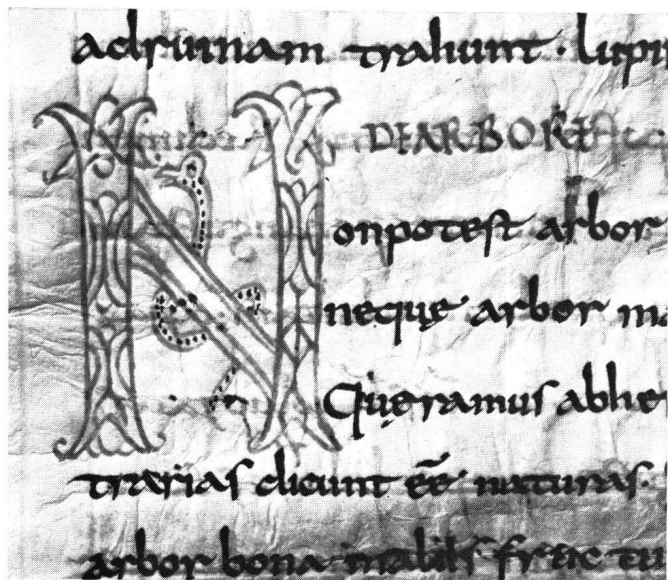 adruinam trahunt · lupi
DE ARBORE
Non potest arbor
neque arbor ma
Queramus abhe
trarias dicunt eē naturas.
arbor bona malos fruc tu